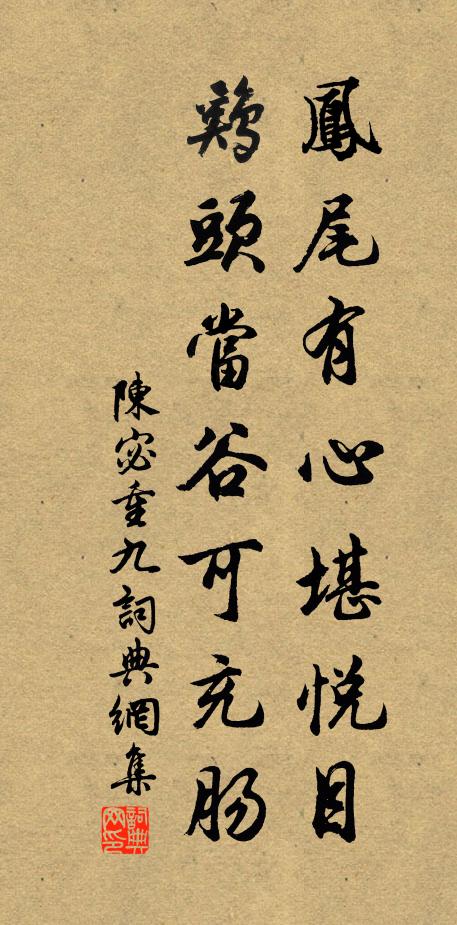 鳳尾有心堪悦目
鷄頭當谷可充肠
陳宓重九詞典網集
詞典网印